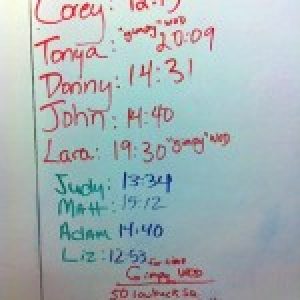 Corey: 12:13
Tonya: "gimpy" WOD 20:09
Donny: 14:31
John: 14:40
Lara: 19:30 "gimpy" WOD
Judy: 13:34
Matt: 15:12
Adam 14:40
Liz: 12:53
Gimpy WOD
50